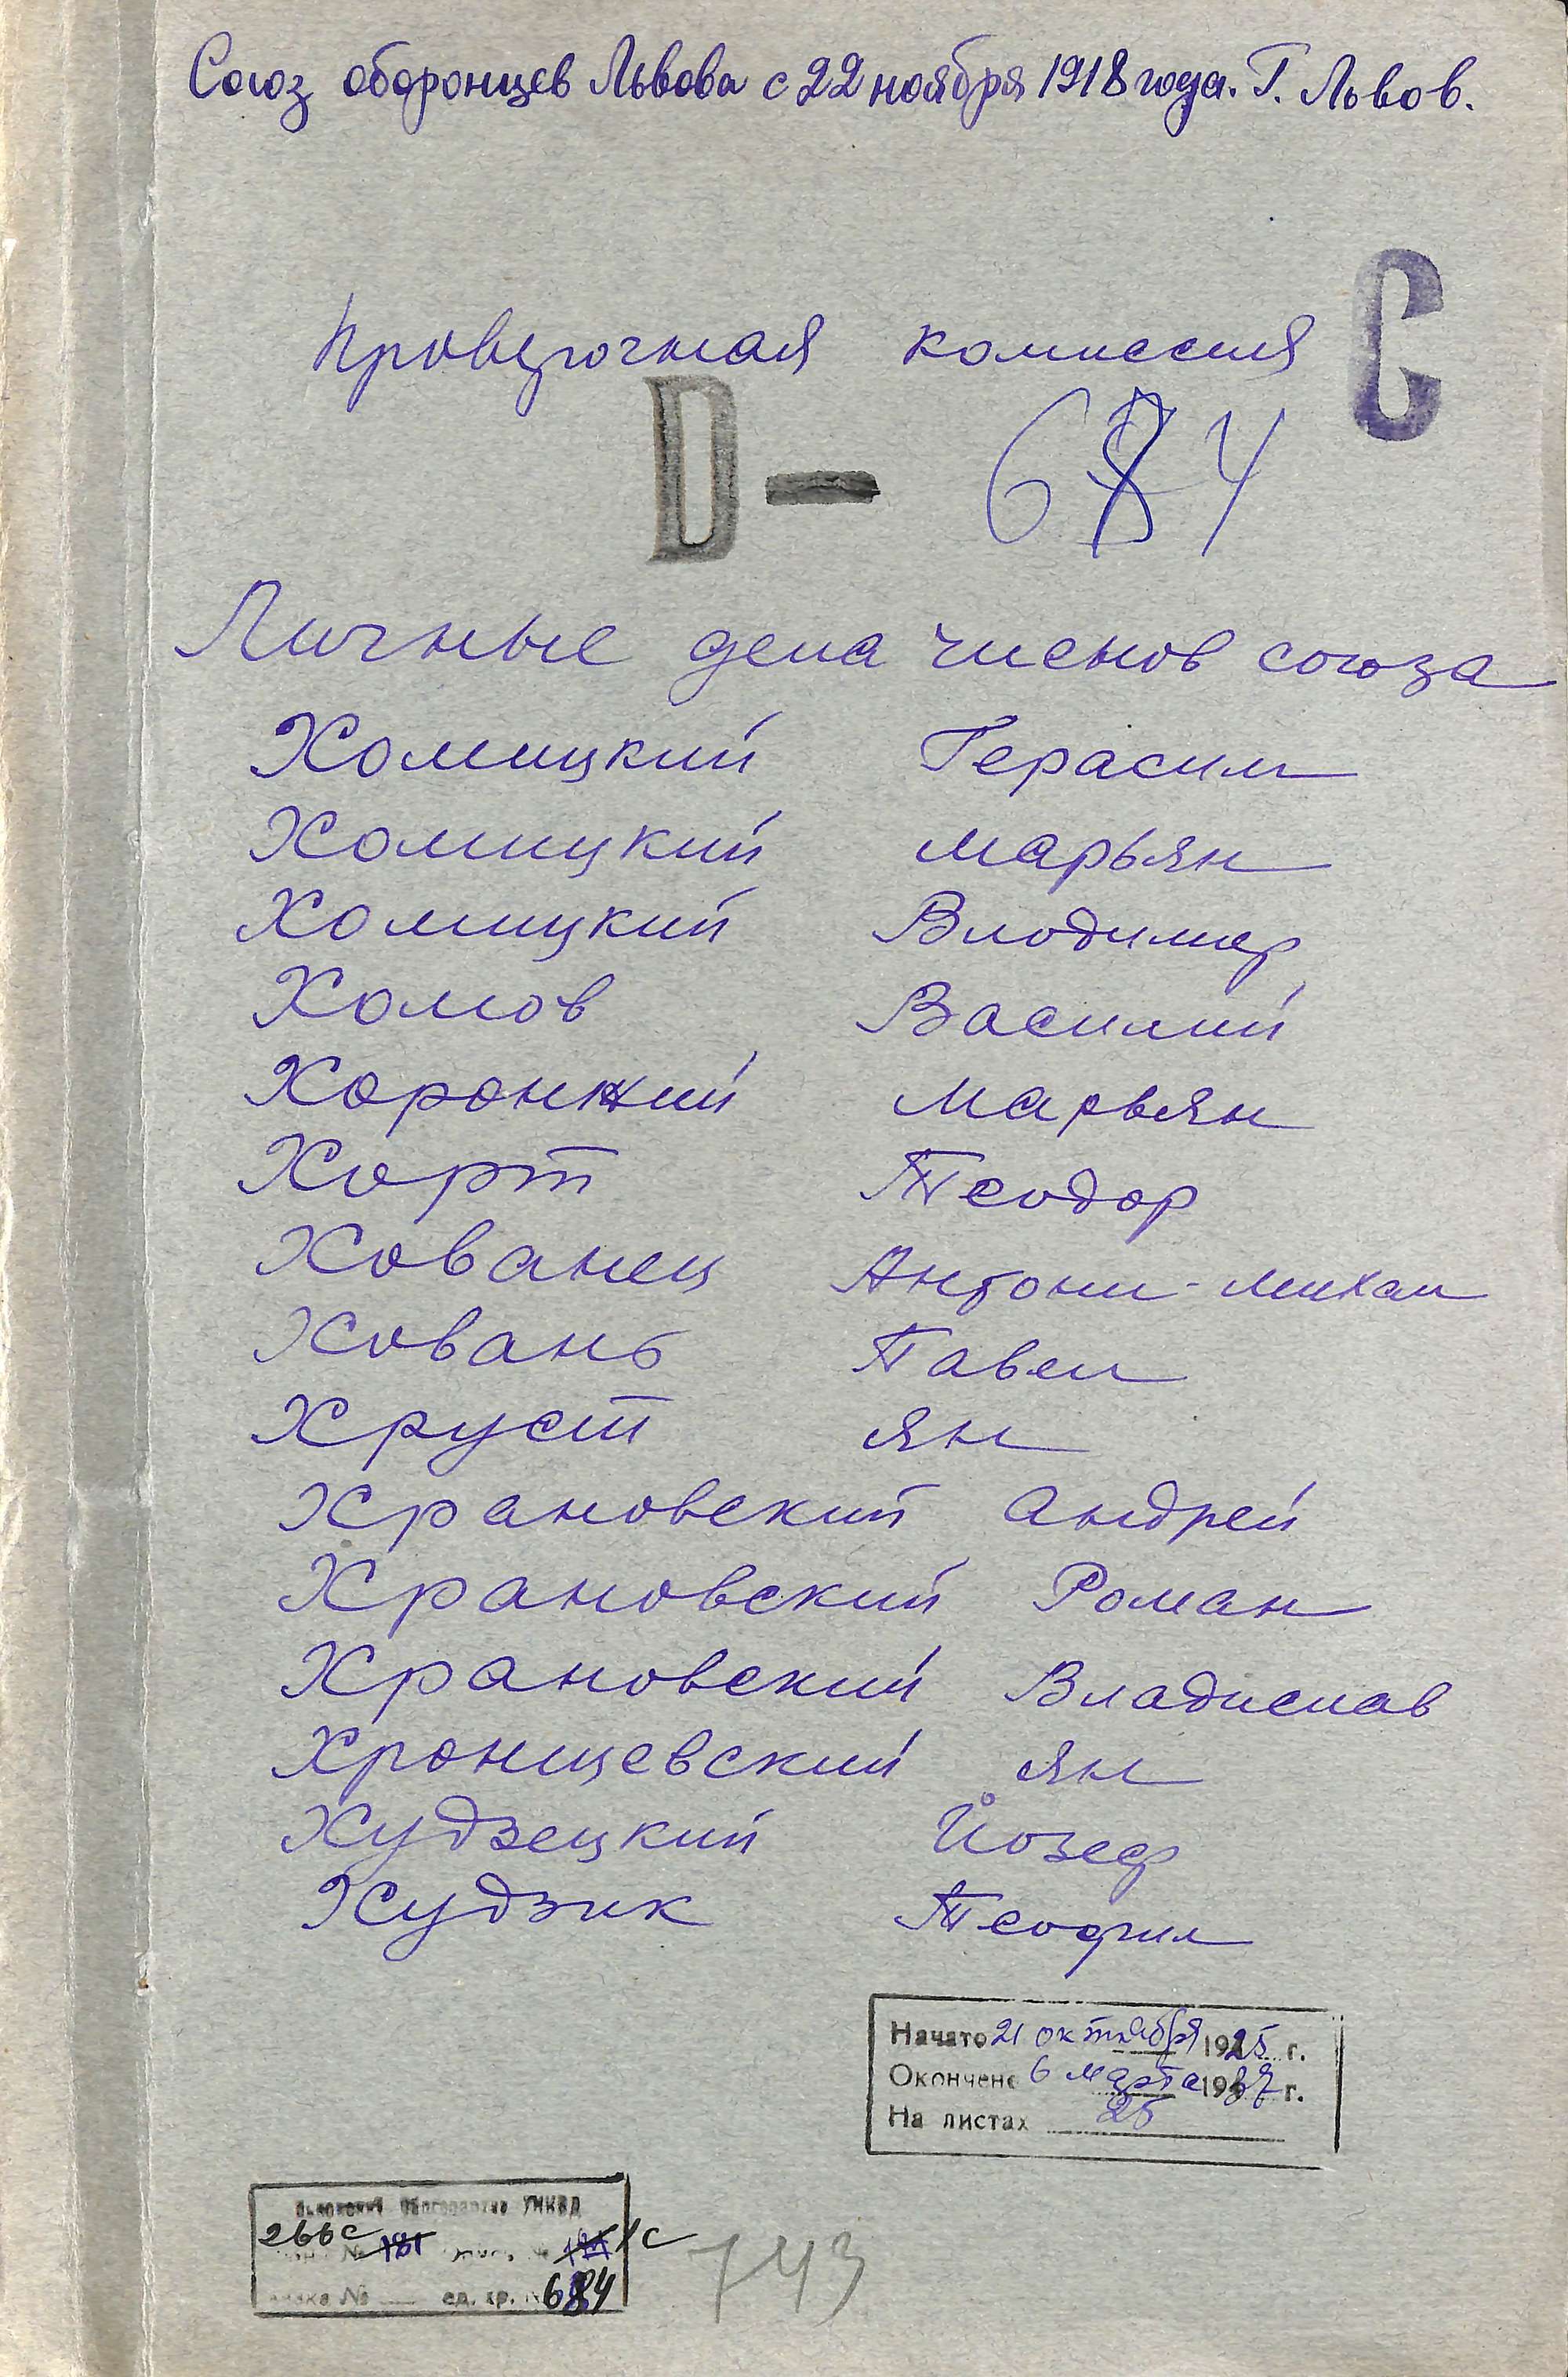 Союз оборонцев Львова с 22 ноября 1918 года. Г. Львов.
С
Проверочная комиссия
D — 684
Личные дела членов союза
Хомицкий Герасим
Хомицкий Марьян
Хомицкий Влодимир
Хомов Василий
Хоронжий Марьян
Хорт Теодор
Хованец Антони-Михал
Ховань Павел
Хруст Ян
Храновский Андрей
Храновский Роман
Храновский Владислав
Хронщевский Ян
Худзецкий Йозеф
Худзик Теофил
Начато 21 октября 1925 г.
Окончено 6 марта 1937 г.
На листах 25
Львовский Облгосархив УНКВД
266с 181 1с
ед. хр. 684
743